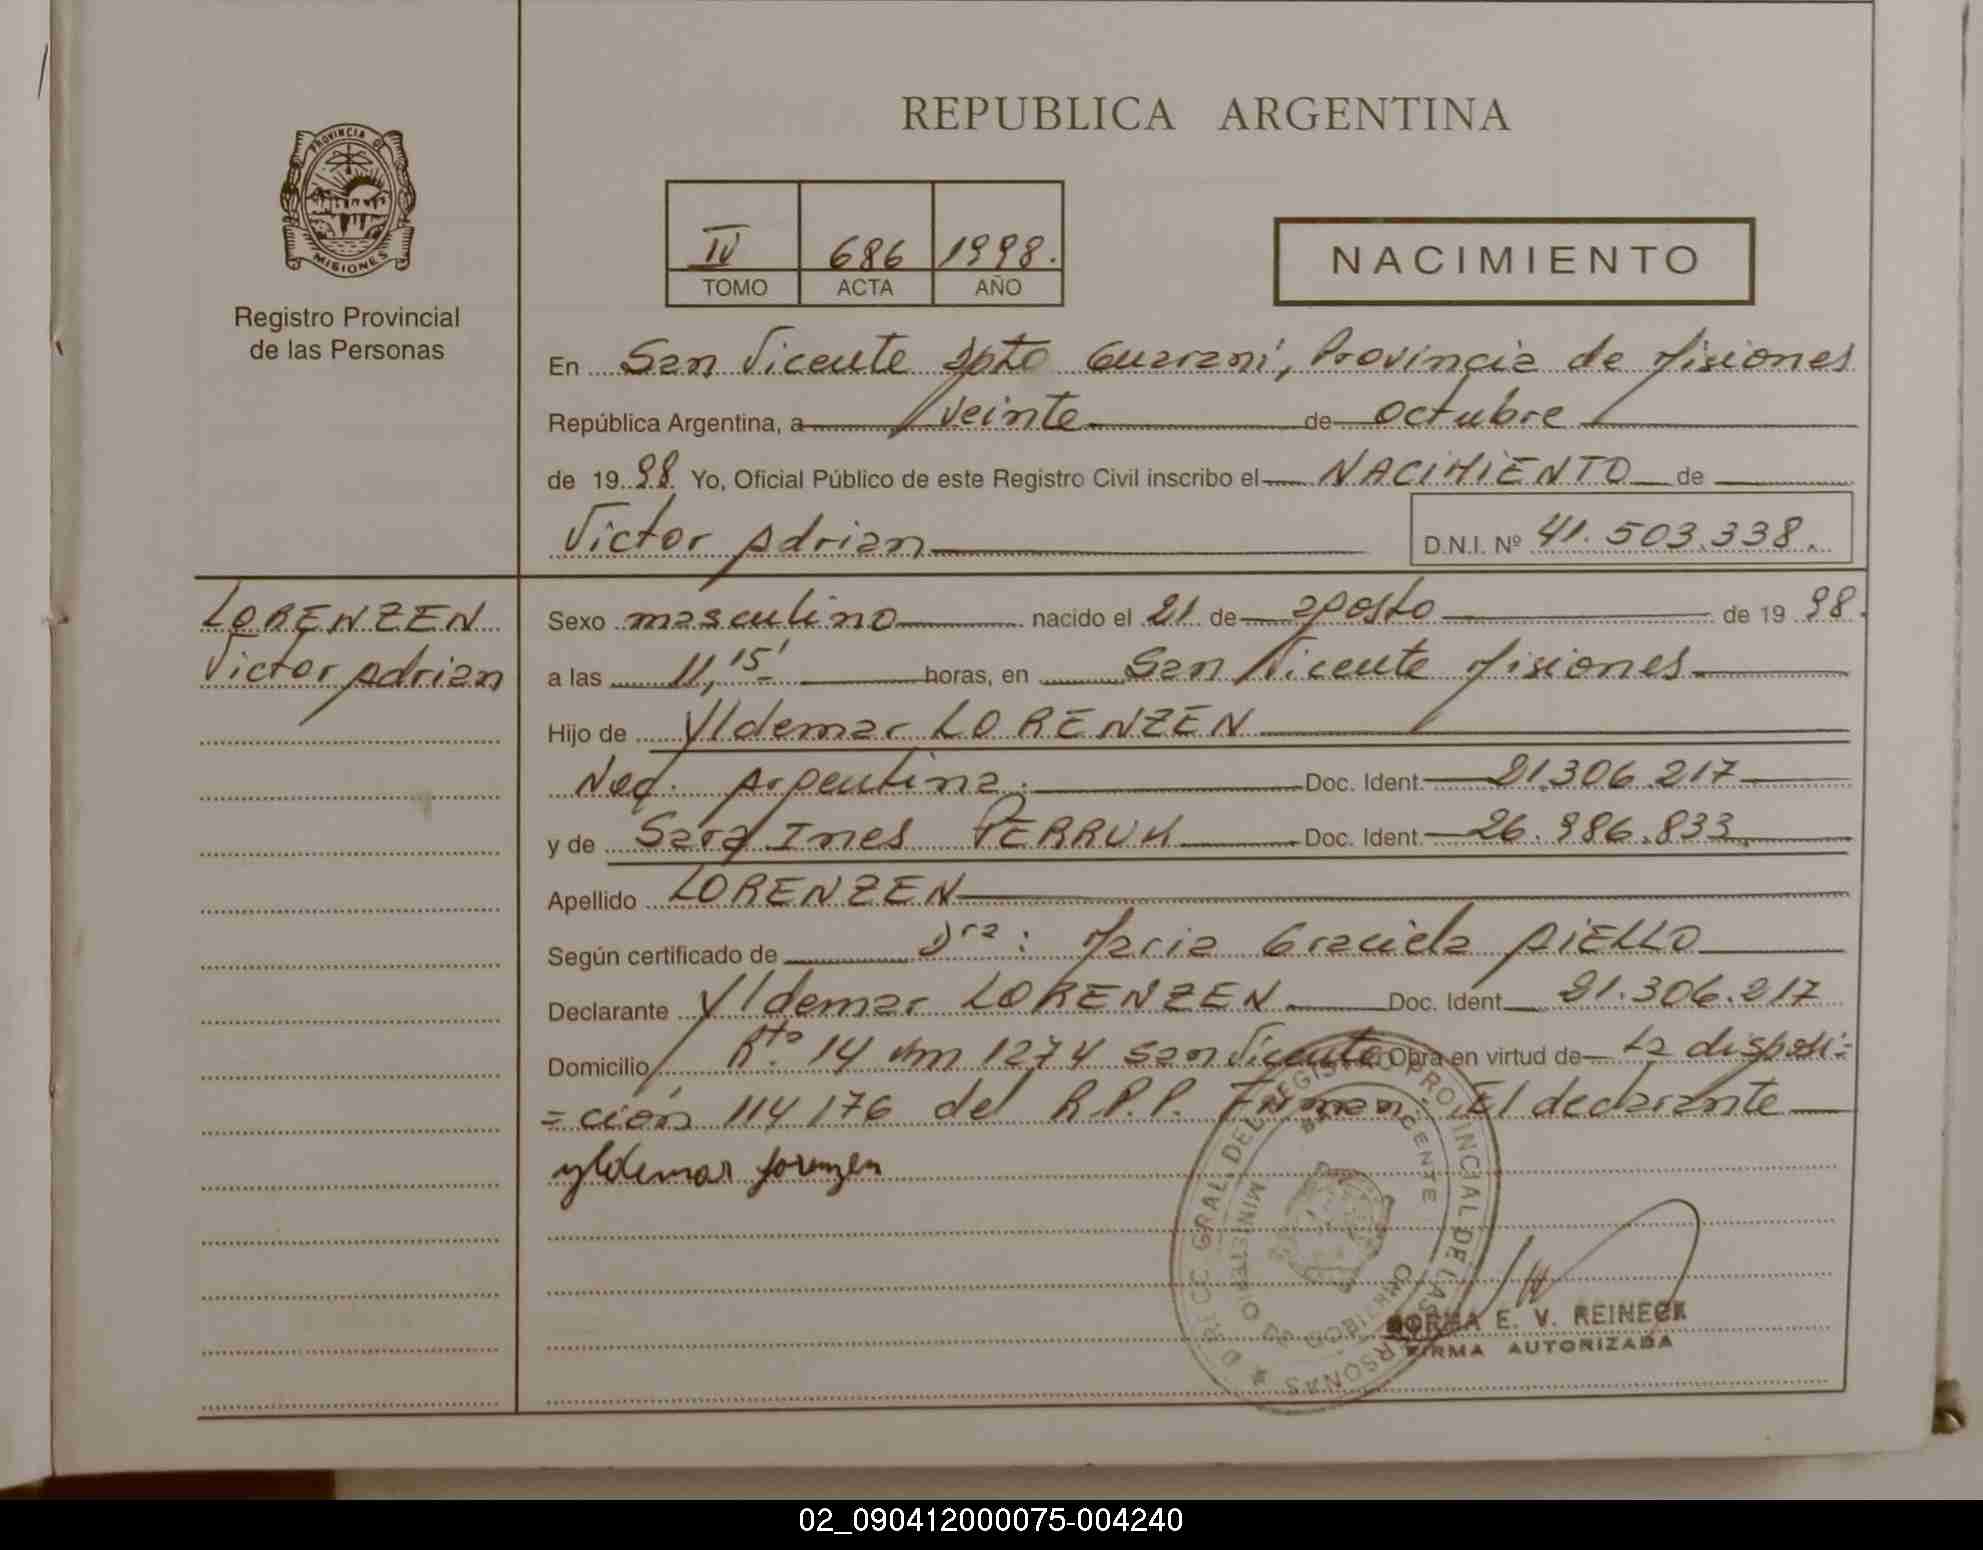 REPUBLICA ARGENTINA
PROVINCIA DE
MISIONES
Registro Provincial
de las Personas
IV 686 1998.
TOMO ACTA AÑO
NACIMIENTO
En San Vicente Dpto Guarani, Provincia de Misiones
República Argentina, a veinte de octubre
de 19 98 Yo, Oficial Público de este Registro Civil inscribo el NACIMIENTO de
Victor Adrian D.N.I. Nº 41.503.338.
LORENZEN
Victor Adrian
Sexo masculino nacido el 21 de agosto de 19 98.
a las 11,15' horas, en San Vicente Misiones
Hijo de Yldemar LORENZEN
Nac. Argentina. Doc. Ident. 21.306.217
y de Sara Ines PERRUK Doc. Ident. 26.986.833
Apellido LORENZEN
Según certificado de Dra: Maria Graciela AIELLO
Declarante Yldemar LORENZEN Doc. Ident 21.306.217
Domicilio Rta 14 km 1274 San Vicente Obra en virtud de La disposi=
=ción 114/76 del R.P.P. Firman: El declarante
yldemar Lorenzen
DIREC. GRAL. DEL REGISTRO PROVINCIAL DE LAS PERSONAS
MINISTERIO DE GOBIERNO
SAN VICENTE
NORMA E. V. REINECK
FIRMA AUTORIZADA
02_090412000075-004240